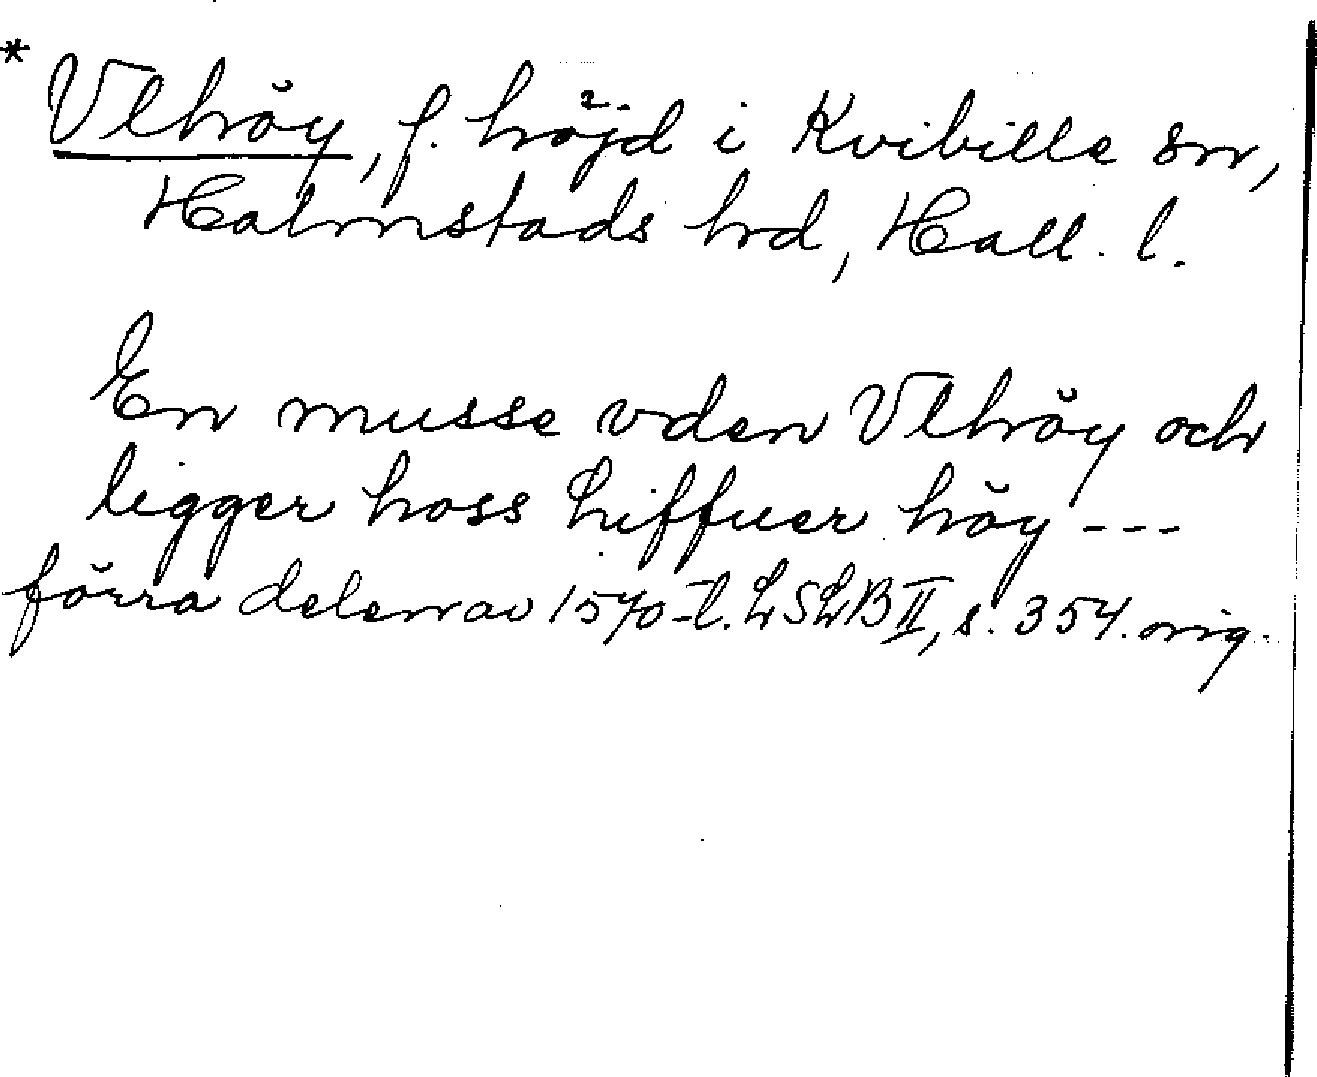 * Vlhöy, f. höjd i Kvibille sn,
Halmstads hd, Hall. l.
En musse vden Vlhöy och
ligger hoss Liffuer höy ---
förra delen av 1570-t. LSLB II, s. 354. orig.